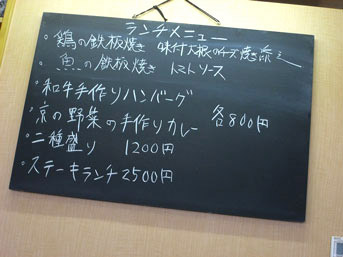 ランチメニュー
・鶏の鉄板焼き 味付大根のチーズ焼き添え
・魚の鉄板焼き トマトソース
・和牛手作りハンバーグ
・京の野菜の手作りカレー 各800円
・二種盛り 1200円
・ステーキランチ2500円